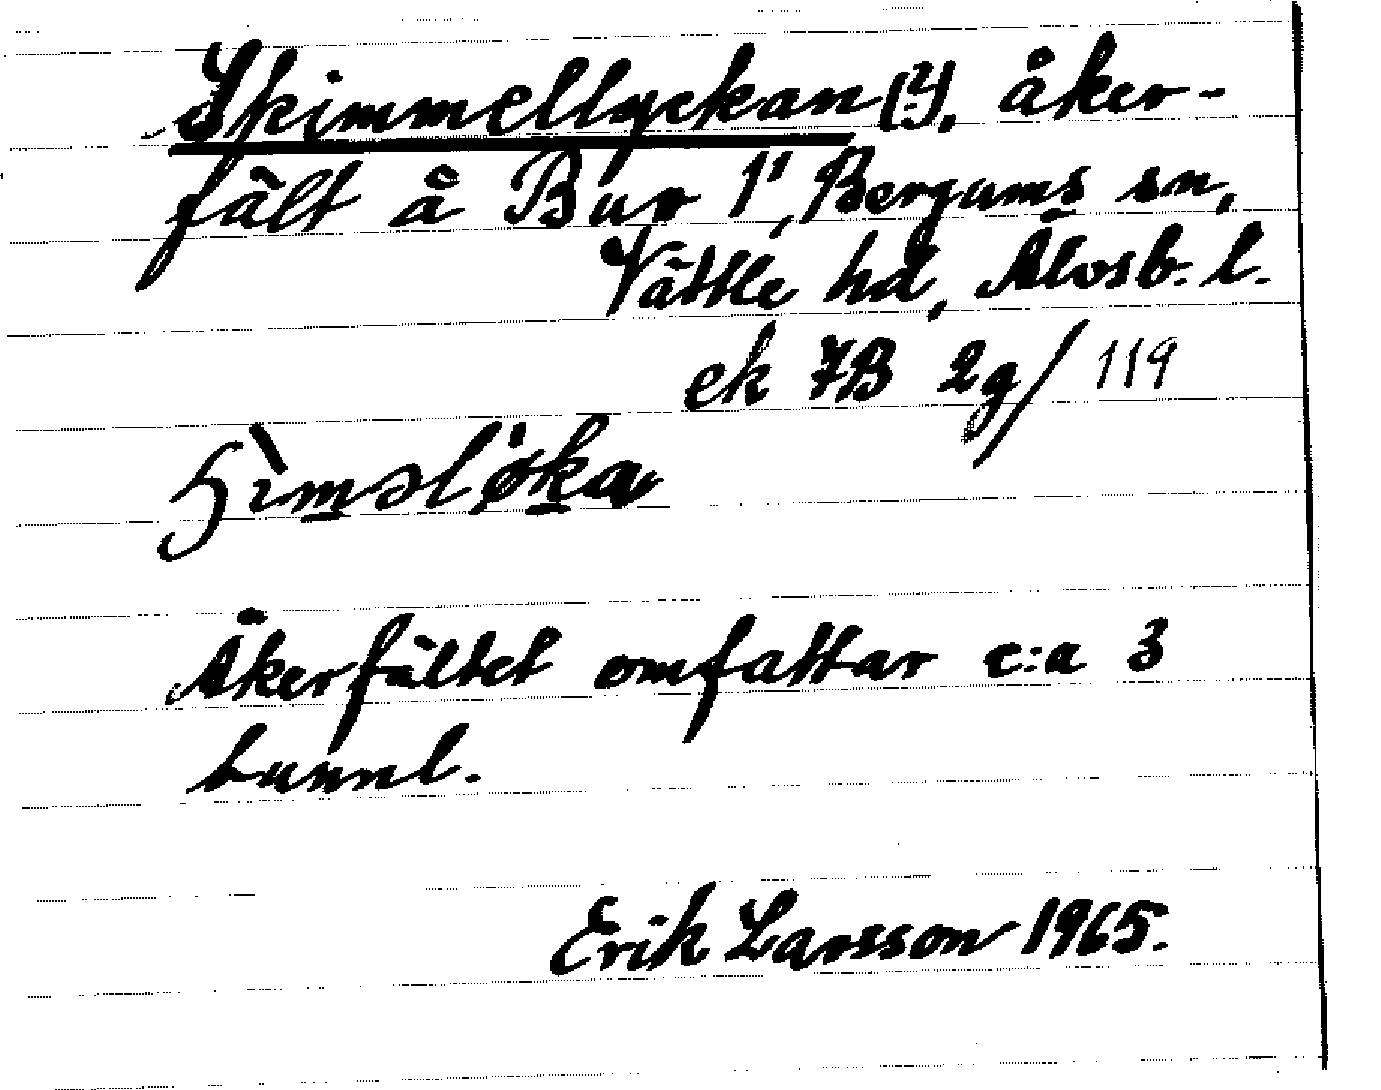 Skimmellyckan (?), åker-
fält å Bur 1¹, Bergums sn,
Vättle hd, Älvsb. l.
ek 7B 2g/119
ʃìməlöka
Åkerfältet omfattar c:a 3
tunnl.
Erik Larsson 1965.